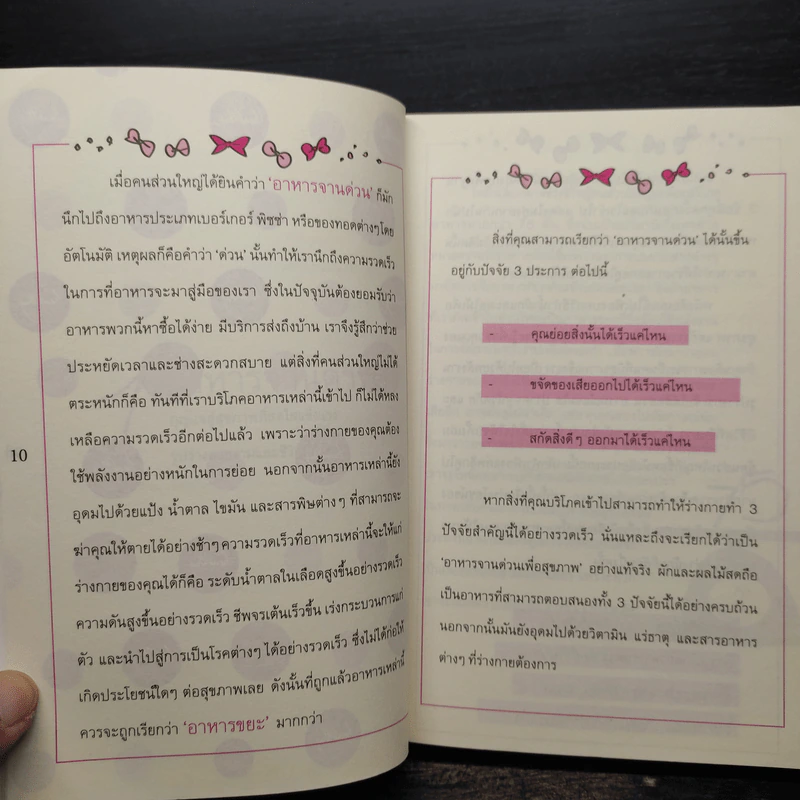 เมื่อคนส่วนใหญ่ได้ยินคำว่า ‘อาหารจานด่วน’ ก็มัก
นึกไปถึงอาหารประเภทเบอร์เกอร์ พิซซ่า หรือของทอดต่างๆโดย
อัตโนมัติ เหตุผลก็คือคำว่า ‘ด่วน’ นั้นทำให้เรานึกถึงความรวดเร็ว
ในการที่อาหารจะมาสู่มือของเรา ซึ่งในปัจจุบันต้องยอมรับว่า
อาหารพวกนี้หาซื้อได้ง่าย มีบริการส่งถึงบ้าน เราจึงรู้สึกว่าช่วย
ประหยัดเวลาและช่างสะดวกสบาย แต่สิ่งที่คนส่วนใหญ่ไม่ได้
ตระหนักก็คือ ทันทีที่เราบริโภคอาหารเหล่านี้เข้าไป ก็ไม่ได้หลง
เหลือความรวดเร็วอีกต่อไปแล้ว เพราะว่าร่างกายของคุณต้อง
ใช้พลังงานอย่างหนักในการย่อย นอกจากนั้นอาหารเหล่านี้ยัง
อุดมไปด้วยแป้ง น้ำตาล ไขมัน และสารพิษต่างๆ ที่สามารถจะ
ฆ่าคุณให้ตายได้อย่างช้าๆ ความรวดเร็วที่อาหารเหล่านี้จะให้แก่
ร่างกายของคุณได้ก็คือ ระดับน้ำตาลในเลือดสูงขึ้นอย่างรวดเร็ว
ความดันสูงขึ้นอย่างรวดเร็ว ชีพจรเต้นเร็วขึ้น เร่งกระบวนการแก่
ตัว และนำไปสู่การเป็นโรคต่างๆ ได้อย่างรวดเร็ว ซึ่งไม่ได้ก่อให้
เกิดประโยชน์ใดๆ ต่อสุขภาพเลย ดังนั้นที่ถูกแล้วอาหารเหล่านี้
ควรจะถูกเรียกว่า ‘อาหารขยะ’ มากกว่า
10
สิ่งที่คุณสามารถเรียกว่า ‘อาหารจานด่วน’ ได้นั้นขึ้น
อยู่กับปัจจัย 3 ประการ ต่อไปนี้
- คุณย่อยสิ่งนั้นได้เร็วแค่ไหน
- ขจัดของเสียออกไปได้เร็วแค่ไหน
- สกัดสิ่งดีๆ ออกมาได้เร็วแค่ไหน
หากสิ่งที่คุณบริโภคเข้าไปสามารถทำให้ร่างกายทำ 3
ปัจจัยสำคัญนี้ได้อย่างรวดเร็ว นั่นแหละถึงจะเรียกได้ว่าเป็น
‘อาหารจานด่วนเพื่อสุขภาพ’ อย่างแท้จริง ผักและผลไม้สดถือ
เป็นอาหารที่สามารถตอบสนองทั้ง 3 ปัจจัยนี้ได้อย่างครบถ้วน
นอกจากนั้นมันยังอุดมไปด้วยวิตามิน แร่ธาตุ และสารอาหาร
ต่างๆ ที่ร่างกายต้องการ